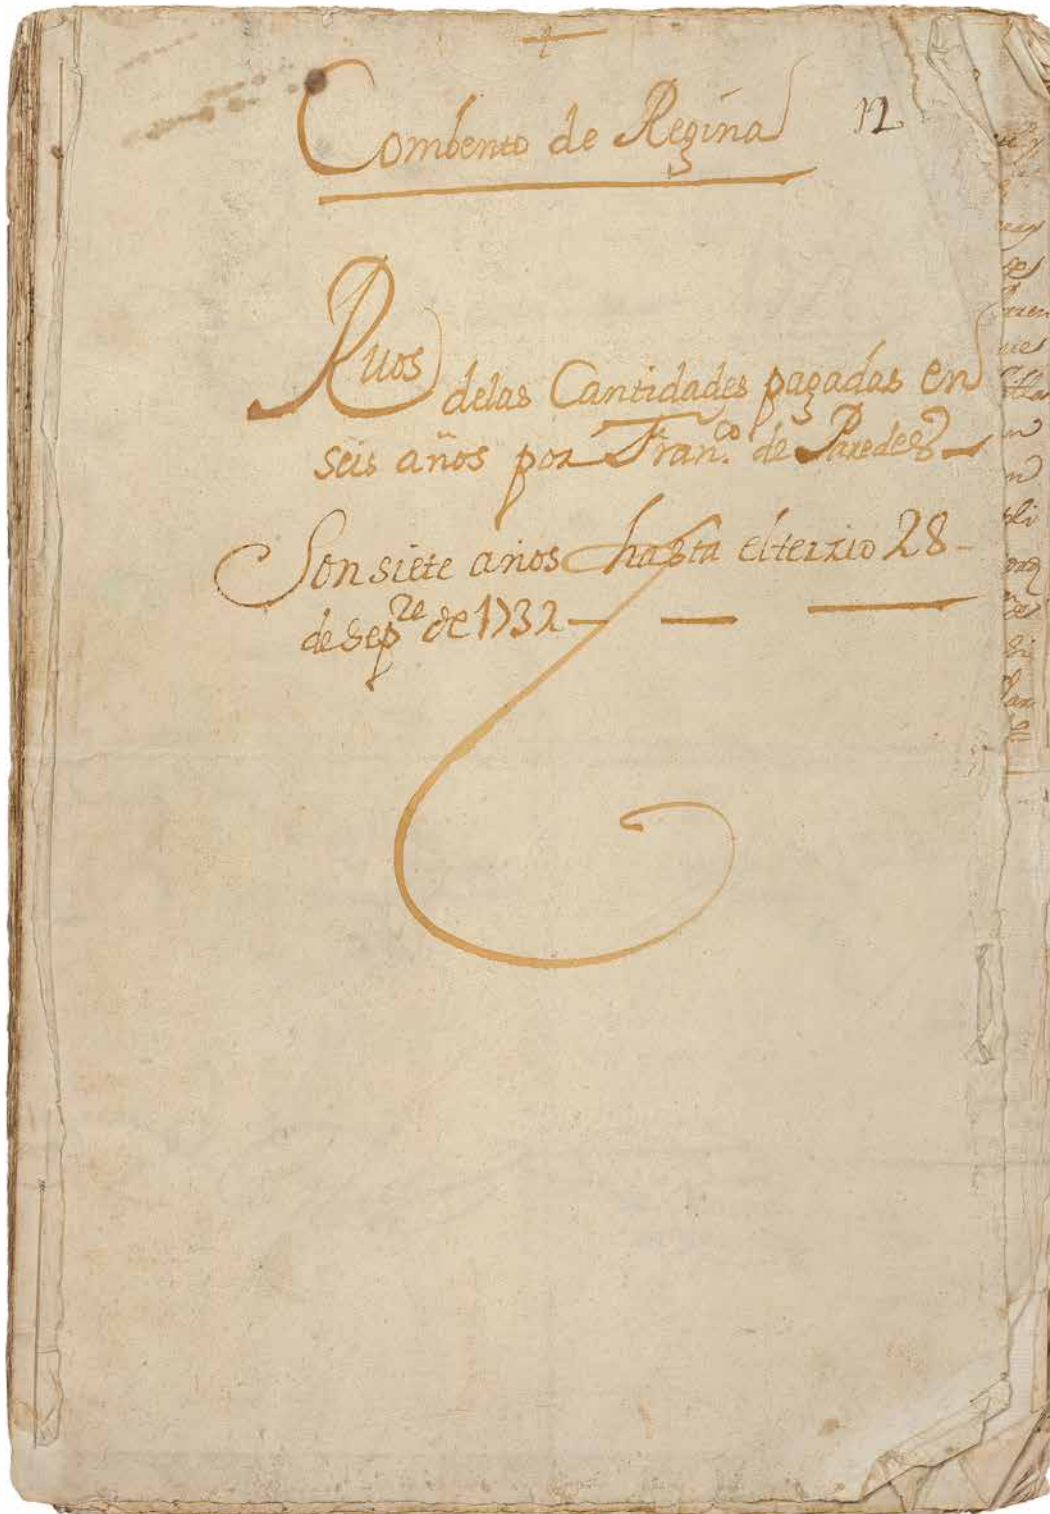 Combento de Regina 12
Rvos
delas Cantidades pagadas en
seis años por Fran.co de Paredes
Son siete años hasta el terzio 28
de Sepre de 1732